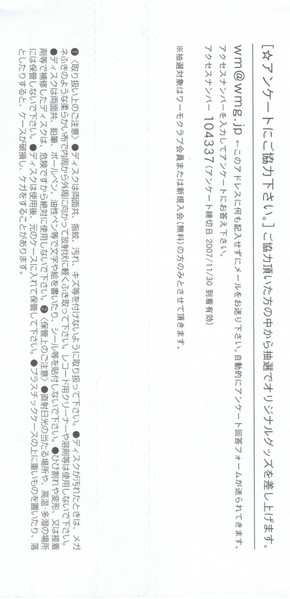 [☆アンケートにご協力下さい。]ご協力頂いた方の中から抽選でオリジナルグッズを差し上げます。
wm@wmg.jp ←このアドレスに何も記入せずにメールをお送り下さい。自動的にアンケート回答フォームが送られてきます。
アクセスナンバーを入力してアンケートにお答え下さい。
アクセスナンバー 104337(アンケート締切日 2007/11/30 到着有効)
※抽選対象はワーモクラブ会員または新規入会(無料)の方のみとさせて頂きます。
❶〈取り扱い上のご注意〉●ディスクは両面共、指紋、汚れ、キズ等を付けないように取り扱って下さい。●ディスクが汚れたときは、メガ
ネふきのような柔らかい布で内周から外周に向かって放射状に軽くふき取って下さい。レコード用クリーナーや溶剤等は使用しないで下さい。
●ディスクは両面共、鉛筆、ボールペン、油性ペン等で文字や絵を書いたり、シール等を貼付しないで下さい。●ひび割れや変形、又は接着
剤等で補修したディスクは、危険ですから絶対に使用しないで下さい。❷〈保管上のご注意〉●直射日光の当たる場所や、高温・多湿の場所
には保管しないで下さい。●ディスクは使用後、元のケースに入れて保管して下さい。●プラスチックケースの上に重いものを置いたり、落
としたりすると、ケースが破損し、ケガをすることがあります。